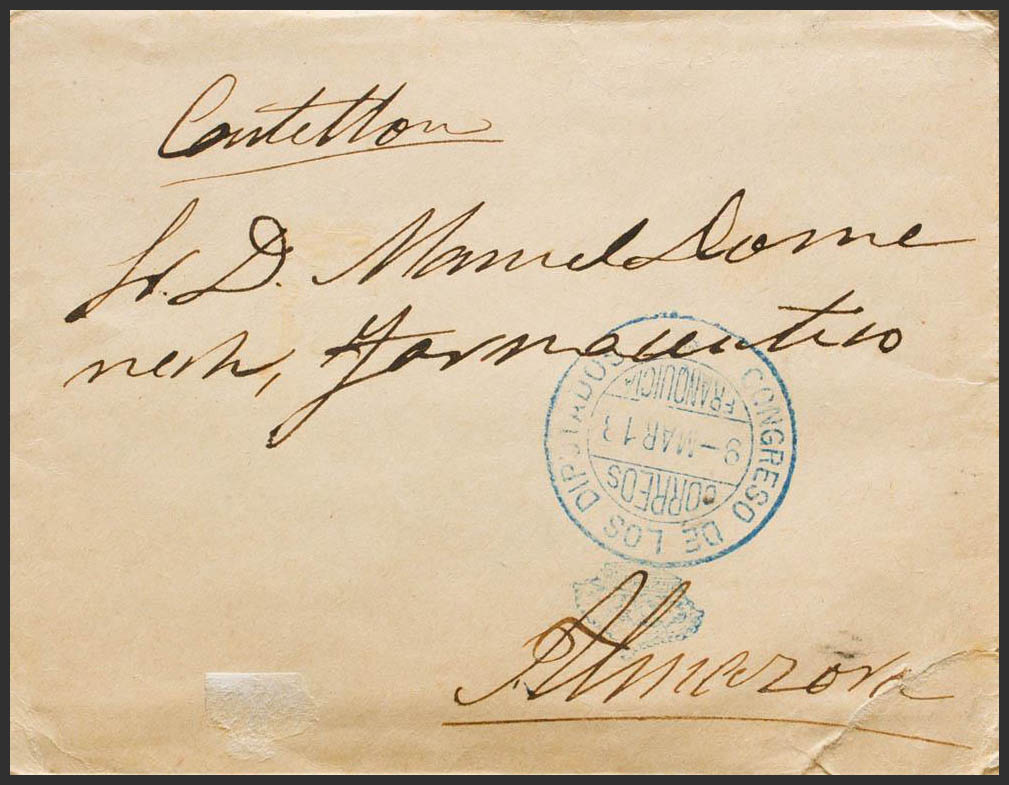 Castellon
Sr. D. Manuel Dome
nech, Farmaceutico
CONGRESO DE LOS DIPUTADOS
FRANQUICIA
9-MAR 13
CORREOS
Almazora